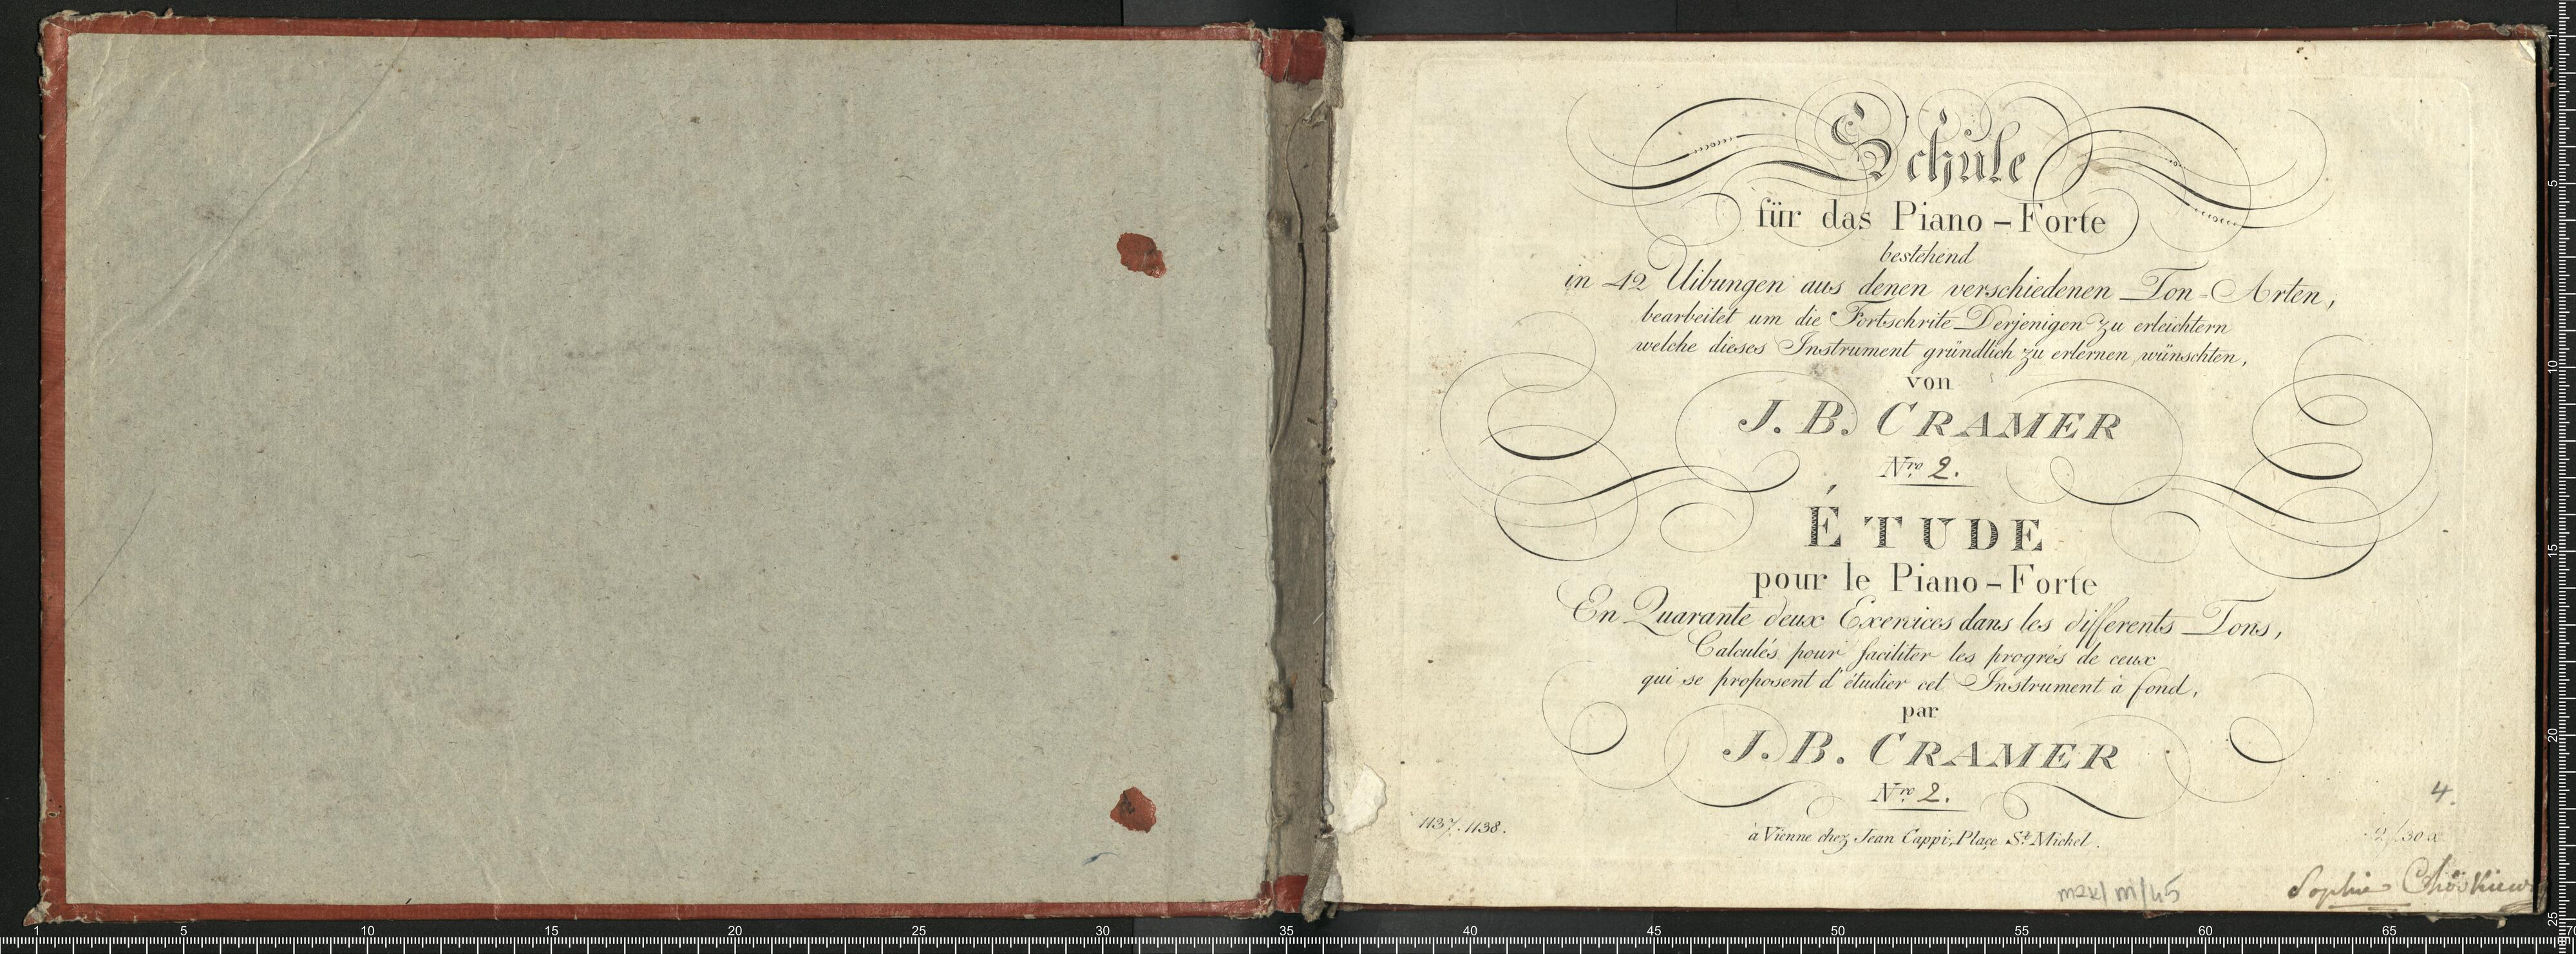 Schule
für das Piano-Forte
bestehend
in 42 Uibungen aus denen verschiedenen Ton-Arten,
bearbeitet um die Fortschrite Derjenigen zu erleichtern
welche dieses Instrument gründlich zu erlernen wünschten,
von
J. B. CRAMER
Nro 2.
ÉTUDE
pour le Piano-Forte
En Quarante deux Exercices dans les differents Tons,
Calculés pour faciliter les progrés de ceux
qui se proposent d'étudier cet Instrument à fond,
par
J. B. CRAMER
Nro 2.
4.
1137. 1138.
à Vienne chez Jean Cappi, Place St. Michel.
2/30x
Sophie
1 5 10 15 20 25 30 35 40 45 50 55 60 65 70
1 5 10 15 20 25